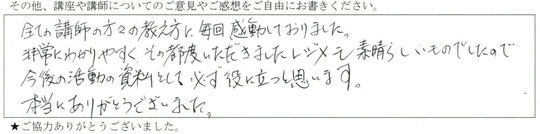 その他、講座や講師についてのご意見やご感想をご自由にお書きください。
全ての講師の方々の教え方に毎回感動しておりました。
非常にわかりやすく、その都度いただきましたレジメも素晴らしいものでしたので
今後の活動の資料として必ず役に立つと思います。
本当にありがとうございました。
★ご協力ありがとうございました。